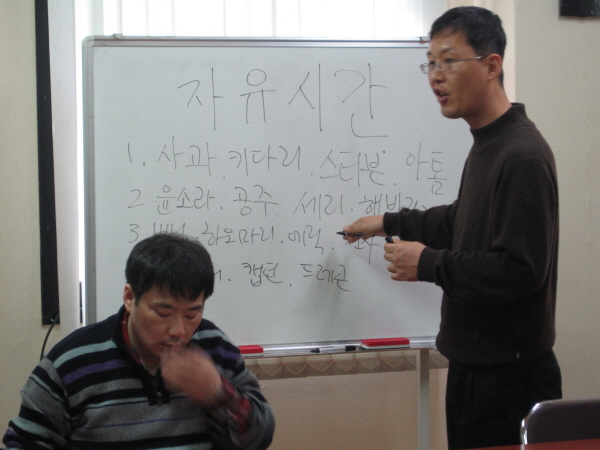 자유시간
1. 사과. 키다리. 스터분. 아톰
2 윤소라. 공주. 세리. 해바라
3 하오마리. 에릭.
캡틴. 드래곤